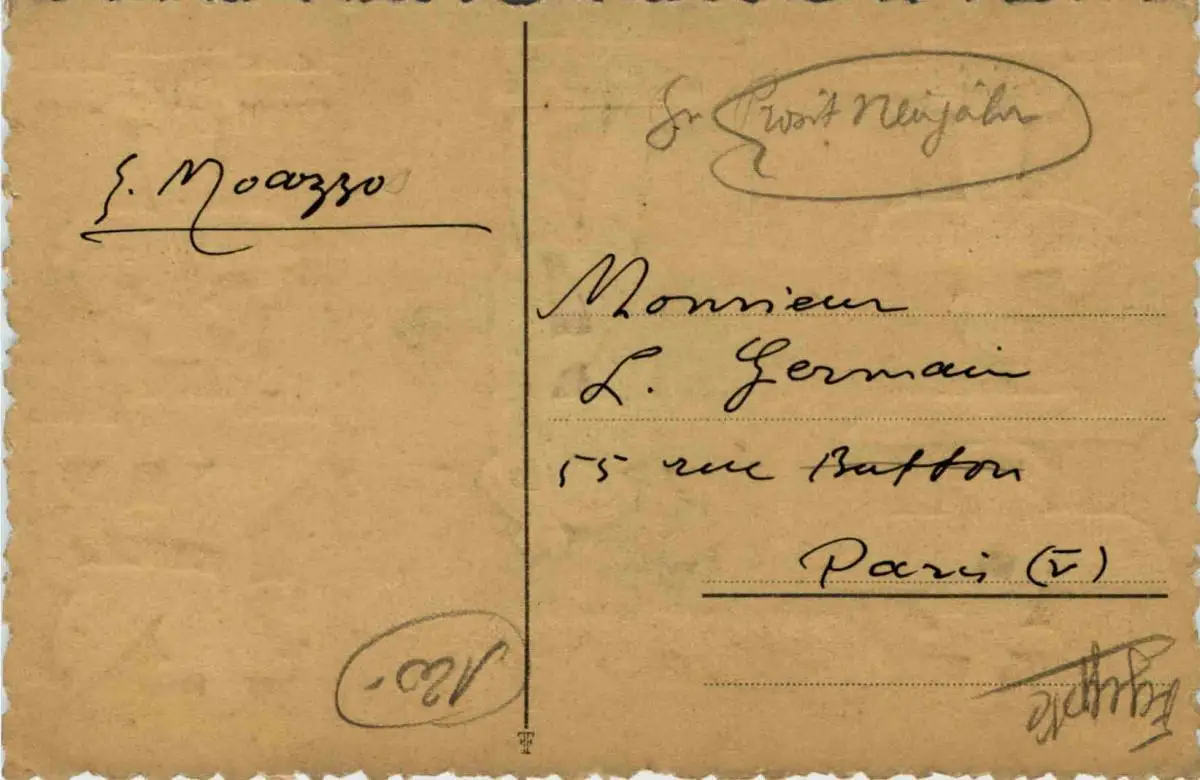 G. Moazzo
Prosit Neujahr
Monsieur
L. Germain
55 rue Buffon
Paris (V)
120-
Egypte